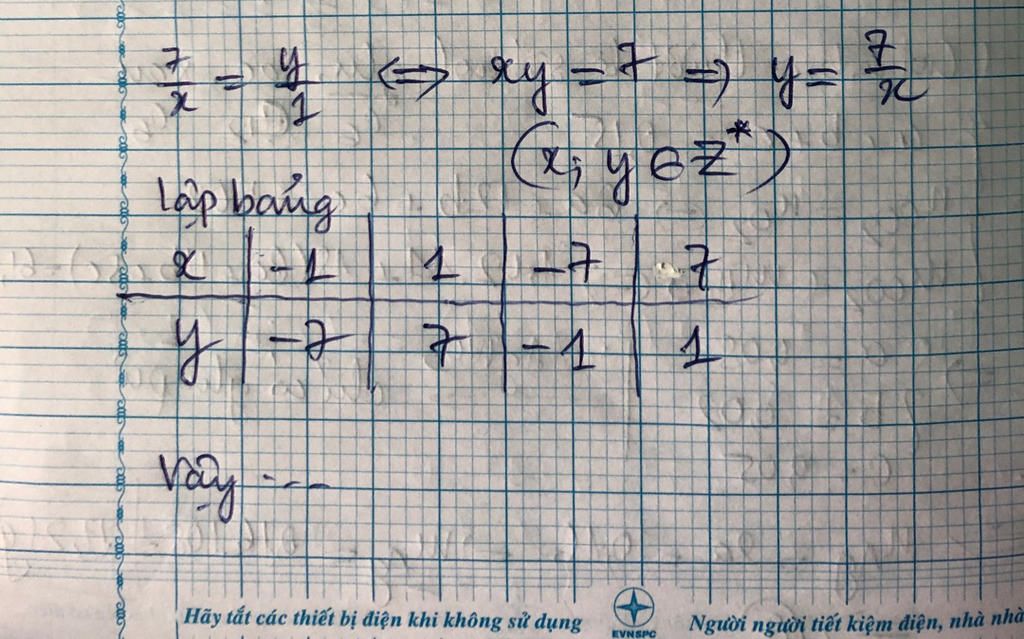 7/x = y/1 ⇔ xy = 7 ⇒ y = 7/x
(x; y ∈ Z*)
lập bảng
x | -1 | 1 | -7 | 7
y | -7 | 7 | -1 | 1
Vậy ---
Hãy tắt các thiết bị điện khi không sử dụng
EVNSPC
Người người tiết kiệm điện, nhà nhà